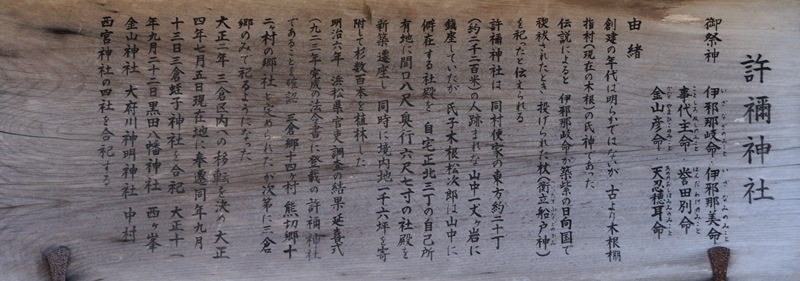 許禰神社
御祭神　伊邪那岐命・伊邪那美命
事代主命・誉田別命
金山彦命・天忍穂耳命
由緒
創建の年代は明らかではないが、古より木根棚
指村(現在の木根)の氏神であった
伝説によると、伊邪那岐命が築紫の日向国で
禊祓されたとき、投げられた杖(衝立船戸神)
を祀ったと伝えられる
許禰神社は、同村使家の東方約二十丁
(約二千二百米)の人跡まれな山中一丈ヶ岩に
鎮座していたが、氏子木根松次郎は山中に
僻在する社殿を、自宅正北三丁の自己所
有地に間口八尺、奥行六尺七寸の社殿を
新築遷座し、同時に境内地一千六坪を寄
附して杉数百本を植林した
明治六年、浜松県官吏調査の結果、延喜式
(九二三年完成の法令書)に登載の許禰神社
であることを確認、三倉郷十四ヶ村、熊切郷十
二ヶ村の郷社と定められたが次第に三倉
郷のみで祀るようになった
大正二年、三倉区内への移転を決め、大正
四年七月五日現在地に奉遷、同年九月
十三日三倉蛭子神社を合祀、大正十一
年九月二十二日黒田八幡神社、西ヶ峯
金山神社、大府川神明神社、中村
西宮神社の四社を合祀する